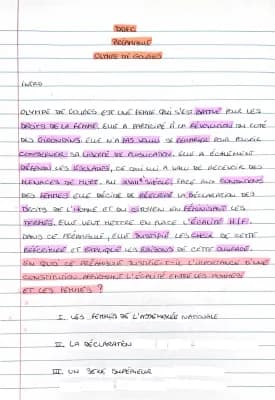 DDFC
PRÉAMBULE
OLYMPE DE GOUGES
INTRO
OLYMPE DE GOUGES EST UNE FEMME QUI S'EST BATTUE POUR LES
DROITS DE LA FEMME. ELLE A PARTICIPÉ À LA RÉVOLUTION DU CÔTÉ
DES GIRONDINS. ELLE N'A PAS VOULU SE REMARIER POUR POUVOIR
CONSERVER SA LIBERTÉ DE PUBLICATION. ELLE A ÉGALEMENT
DÉFENDU LES ESCLAVAGES, CE QUI LUI A VALU DE RECEVOIR DES
MENACES DE MORT. AU XVIIIe SIÈCLE, FACE AUX CONDITIONS
DES FEMMES ELLE DÉCIDE DE RÉÉCRIRE LA DÉCLARATION DES
DROITS DE L'HOMME ET DU CITOYEN EN FÉMINISANT LES
TERMES. ELLE VEUT METTRE EN PLACE L'ÉGALITÉ H/F.
DANS CE PRÉAMBULE, ELLE JUSTIFIE LES CHOIX DE CETTE
RÉÉCRITURE ET EXPLIQUE LES RAISONS DE CETTE
EN QUOI CE PRÉAMBULE JUSTIFIE-T-IL L'IMPORTANCE D'UNE
CONSTITUTION AFFIRMANT L'ÉGALITÉ ENTRE LES HOMMES
ET LES FEMMES ?
I. LES FEMMES DE L'ASSEMBLÉE NATIONALE
II. LA DÉCLARATION
III. UN SEXE SUPÉRIEUR